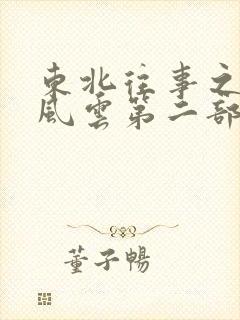 東北往事之
風雲第二部
董子暢